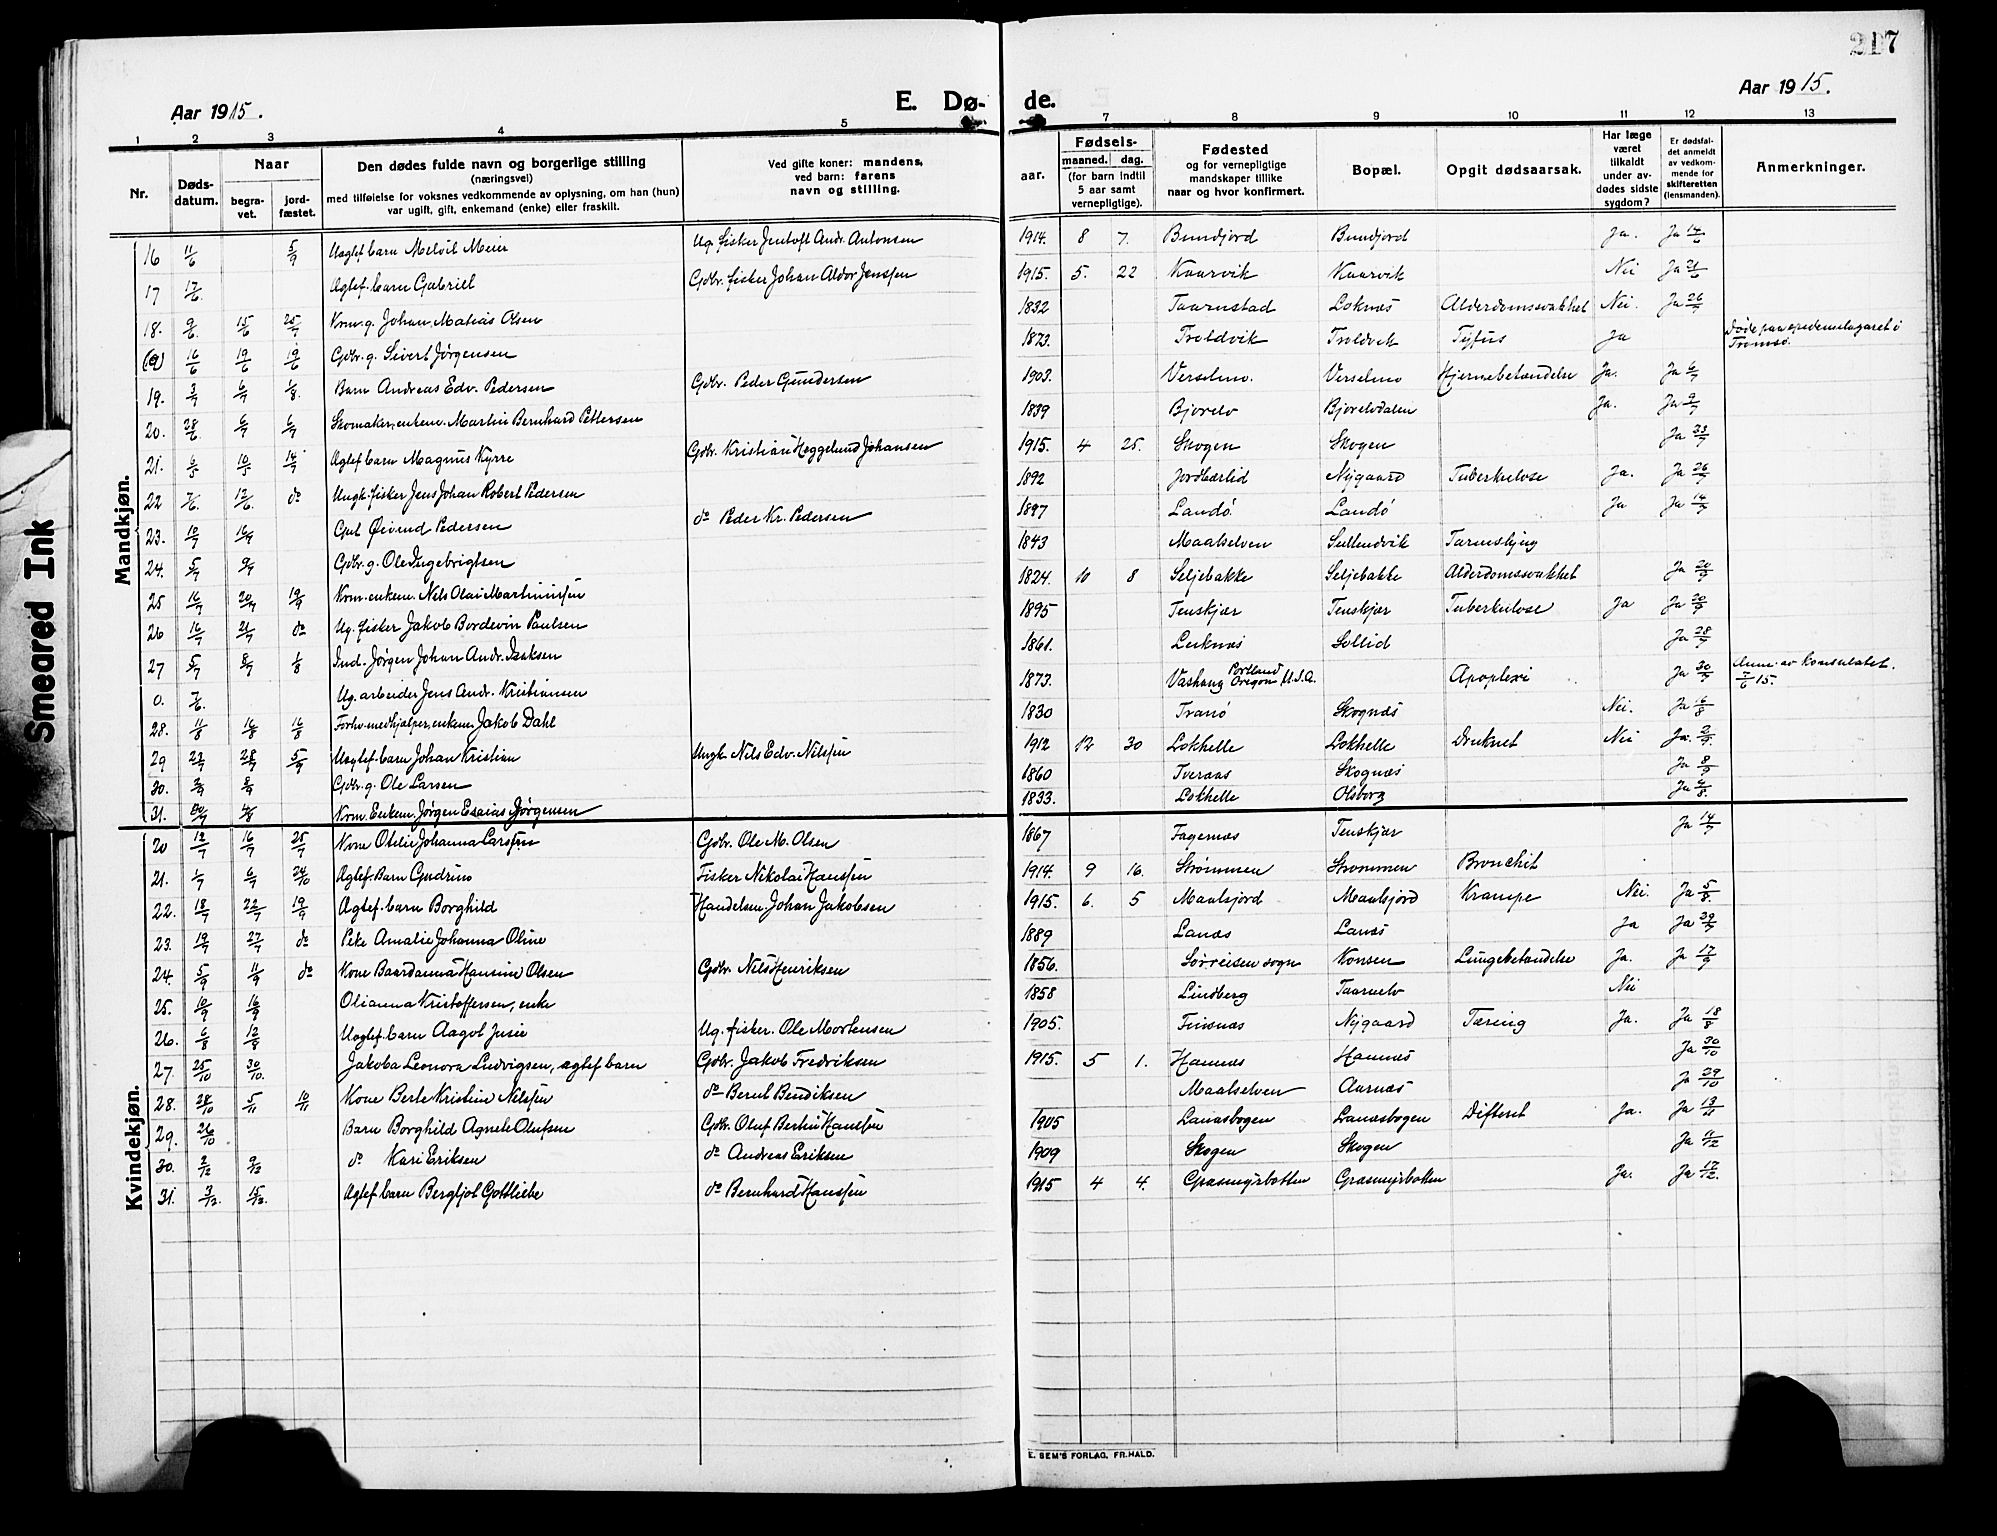 217
Aar 1915.
E. Dø-
de.
Aar 1915.
1 2 3 4 5 7 8 9 10 11 12 13
Nr.
Døds-
datum.
Naar
begra-
vet.
jord-
fæstet.
Den dødes fulde navn og borgerlige stilling
(næringsvei)
med tilføielse for voksnes vedkommende av oplysning, om han (hun)
var ugift, gift, enkemand (enke) eller fraskilt.
Ved gifte koner: mandens,
ved barn: farens
navn og stilling.
Fødsels-
aar.
maaned. dag.
(for barn indtil
5 aar samt
vernepligtige).
Fødested
og for vernepligtige
mandskaper tillike
naar og hvor konfirmert.
Bopæl.
Opgit dødsaarsak.
Har læge
været
tilkaldt
under av-
dødes sidste
sygdom?
Er dødsfal-
det anmeldt
av vedkom-
mende for
skifteretten
(lensmanden).
Anmerkninger.
Mandkjøn.
16 11/6 5/9 Uegtef. barn Melvil Meier Ug. fisker Jentoft Andr. Antonsen 1914. 8 7. Bundjord Bundjord Ja. Ja 14/6
17 17/6. Ægtef. barn Gabriel Gdbr. fisker Johan Aldor Jenssen 1915. 5. 22 Kaarvik Kaarvik Nei Ja 21/6
18. 9/6 15/6 25/7 Krm. g. Johan Matias Olsen 1832 Taarnstad Loknæs Alderdomssvakhet Nei. Ja 26/7
16/6 19/6 19/6 Gdbr. g. Sivert Jørgensen 1873. Troldvik Troldvik Tyfus Ja Døde paa epidemilasaret i
Tromsø.
19. 3/7 6/7 1/8. Barn Andreas Edv. Pedersen Gdbr. Peder Gundersen 1903. Verselmo. Verselmo Hjernebetændelse Ja. Ja 6/7
20. 28/6 6/7 6/7 Skomaker, enkem. Martin Bernhard Pettersen 1839 Bjorelv Bjorelvdalen Ja. Ja 9/7
21. 6/5 10/5 14/7 Ægtef. barn Magnus Kyrre Gdbr. Kristian Heggelund Johansen 1915. 4 25. Skogen Skogen Ja 23/7
22 7/6. 12/6. do Ungk. fisker Jens Johan Robert Pedersen 1892 Jordbærlid Nygaard Tuberkulose Ja. Ja 26/7
23. 10/7 16/7 Gut Øivind Pedersen do Peder Kr. Pedersen 1897 Landø Landø Ja Ja 14/7
24. 5/7 9/7 Gdbr. g. Ole Ingebrigtsen 1843 Maalselven Sultendvik Tarmslyng
25 16/7 20/7 19/9 Krm. enkem. Nels Olai Martinussen 1824. 10 8 Seljebakke Seljebakke Alderdomssvakhet Ja 20/7
26 16/7 21/7 do Ug. fisker Jakob Bordevin Paulsen 1895 Tenskjær Tenskjær Tuberkulose Ja Ja 20/7
27 5/7 8/7 1/8 Ind. Jørgen Johan Andr. Isaksen 1861. Leiknæs Sollid Ja 28/7
0. 7/6. Ug. arbeider Jens Andr. Kristiansen 1873. Portland Oregon U.S.A. Apoplexi Ja 30/7 Anm. av konsulatet.
7/6 15.
28. 11/8 16/8 16/8 Forhv. medhjælper, enkem. Jakob Dahl 1830 Tranø Skognæs Nei. Ja 16/8
29 23/7 28/7 5/9 Uegtef. barn Johan Kristian Ungk. Nils Edv. Nilssen 1912 12 30 Lokhelle Lokhelle Druknet Nei Ja. 2/9.
30. Gdbr. g. Ole Larsen 1860 Tveraas Skognæs Ja 8/9
31. Krm. Enkem. Jørgen Esaias Jørgensen 1833. Lokhelle Olsborg
Kvindekjøn.
20 12/7 16/7 25/7 Kone Otelie Johanna Larssen Gdbr. Ole M. Olsen 1867 Fagernæs Tenskjær Ja 14/7
21. 1/7 6/7 24/10 Ægtef. Barn Gudrun Fisker Nikolai Hanssen 1914 9 16. Strømmen Strømmen Bronchit
22. 18/7 22/7 19/9 Ægtef. barn Borghild Handelsm. Johan Jakobsen 1915. 6. 5 Maalsjord Maalsjord Krampe Nei. Ja 5/8.
23. 19/7 27/7 do Peke Amalie Johanna Oline 1889 Lanæs Lanæs Ja Ja 29/7
24. 5/9 11/9 do Kone Baardanna Hansine Olsen Gdbr. Nils Henriksen 1856. Sørreisen sogn Konsen Lungebetændelse Ja. Ja 17/9
25. 10/9 16/9 Olianna Kristoffersen, enke 1858 Lindberg Taarnelv Nei
26. 6/8 12/8 Uegtef. barn Aagot Jusie Ug. fisker. Ole Mortensen 1905. Finsnæs Nygaard Tæring Ja. Ja 18/8
27. 25/10 30/10. Jakoba Leonora Ludvigsen, ægtef barn Gdbr. Jakob Fredriksen 1915. 5 1. Hamnæs Hamnæs Ja 30/10
28. 28/10 5/11 10/11 Kone Berte Kristine Nilsen do Bernt Bendiksen Maalselven Aarnæs Ja 29/10
29. 26/10 Barn Borghild Agnete Olufsen Gdbr. Oluf Bertin Hanssen 1905 Lanæsbogen Lanæsbogen Difterit Ja. Ja 13/11
30. 2/12 9/12 do Kari Eriksen do Andreas Eriksen 1909 Skogen Skogen Ja 11/12
31. 3/12. 15/12. Ægtef barn Bergljot Gottliebe do Bernhard Hanssen 1915 4 4. Græsmyrbotten Græsmyrbotten Ja. Ja 17/12.
E. SEM'S FORLAG, FR.HALD.
Smeared Ink